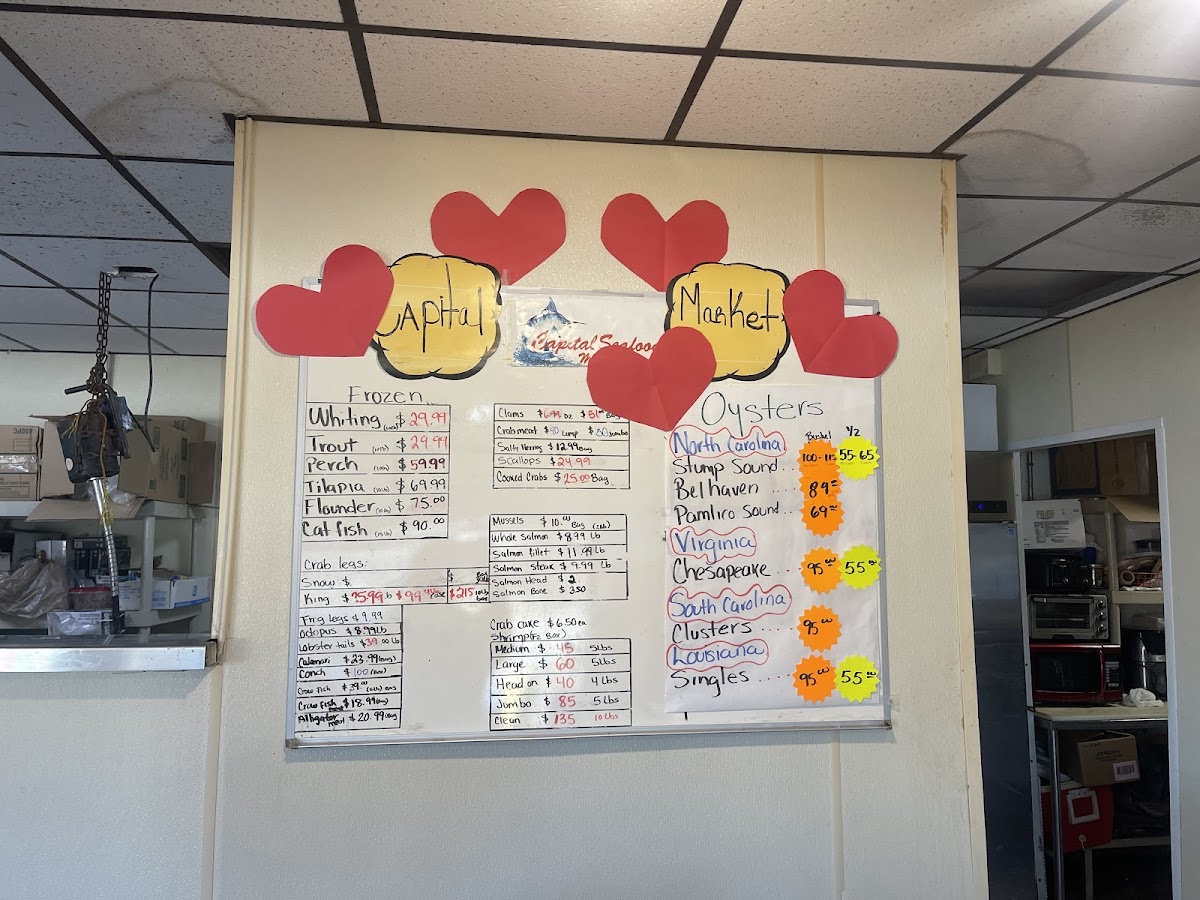 Capital
Market
Capital Seafood
Frozen
Whiting $ 29.99
Trout $ 29.99
Perch $ 59.99
Tilapia $ 69.99
Flounder $ 75.00
Cat fish $ 90.00
Crab legs:
Snow $
King
Frog legs $ 9.99
Octopus $ 8.99 Lb
Lobster tails $39.00 Lb
Calamari $ 23.99
Conch $ 100
Craw fish $ 39.00
Craw fish $ 18.99
Alligator $ 20.99
Clams
Crabmeat $40 Lump $ 50 Jumbo
Salty Herring $ 12.99 Bag
Scallops $ 24.99
Cooked Crabs $ 25.00 Bag
Mussels $ 10.00 Bag (2lb)
Whole Salmon $ 8.99 Lb
Salmon fillet $ 11.99 Lb
Salmon Steak $ 9.99 Lb
Salmon Head $ 2
Salmon Bone $ 3.50
Crab cake $ 6.50 ea
Shrimp
Medium $ 45 5Lbs
Large $ 60 5Lbs
Head on $ 40 4 Lbs
Jumbo $ 85 5 Lbs
Clean $ 135 10 Lbs
Oysters
Bushel 1/2
North Carolina
Stump Sound.. 100-115 55-65
Belhaven .... 89
Pamlico Sound.. 69
Virginia
Chesapeake .... 95 55
South Carolina
Clusters .... 95
Lousiana
Singles ..... 95 55